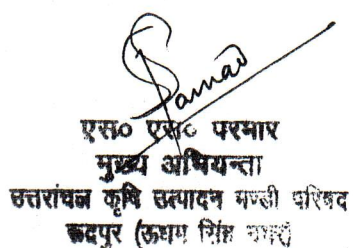 Parmar
एस० एस० परमार
मुख्य अभियन्ता
उत्तरांचल कृषि उत्पादन मण्डी परिषद
रूदपुर (ऊधम सिंह नगर)